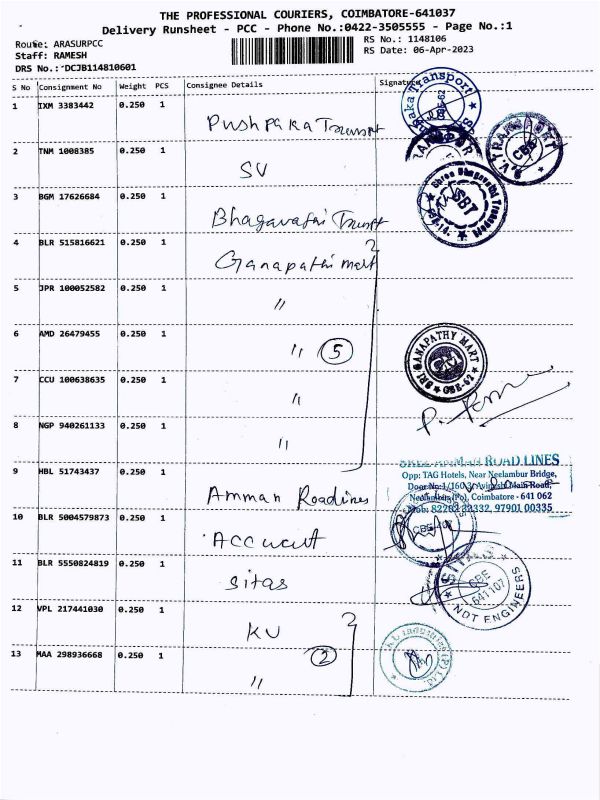 THE PROFESSIONAL COURIERS, COIMBATORE-641037
Delivery Runsheet - PCC - Phone No.:0422-3505555 - Page No.:1
Route: ARASURPCC RS No.: 1148106
Staff: RAMESH RS Date: 06-Apr-2023
DRS No.: DCJB114810601
S No Consignment No Weight PCS Consignee Details Signature
1 IXM 3383442 0.250 1
Pushpaka Transport
2 TNM 1008385 0.250 1
SV
3 BGM 17626684 0.250 1
Bhagavathi
4 BLR 515816621 0.250 1
Ganapathi mart
5 JPR 100052582 0.250 1
"
6 AMD 26479455 0.250 1
" 5
7 CCU 100638635 0.250 1
"
8 NGP 940261133 0.250 1
"
9 HBL 51743437 0.250 1
Amman Roadlines
10 BLR 5004579873 0.250 1
Accurat
11 BLR 5550824819 0.250 1
Sitas
12 VPL 217441030 0.250 1
KU
13 MAA 298936668 0.250 1
" 2
Transport
CBE-62
V. TRANSPORT
CBE
Shree Bhagavathi Transports
SBT
SRI GANAPATHY MART
CBE-62
SREE AMMAN ROAD LINES
Opp: TAG Hotels, Near Neelambur Bridge,
Door No:1/160-3, Avinashi Main Road,
Neelambur(Po), Coimbatore - 641 062
97901 00335
CBE-407
SITA
CBE
641107
NDT ENGINEERS